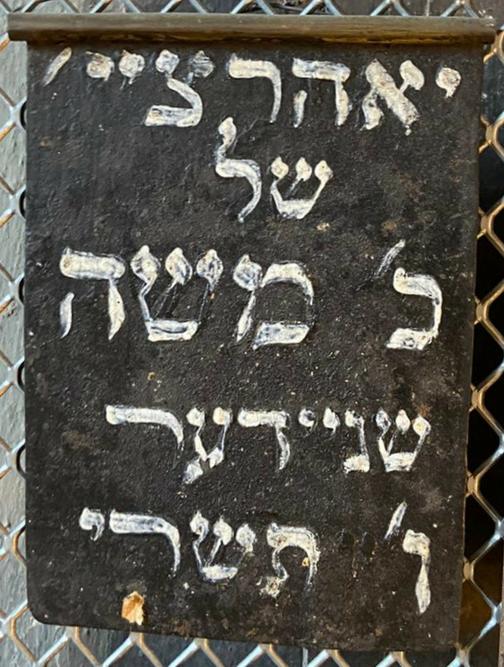 יאהרצייי׳
של
כ׳ משה
שניידער
ו׳ תשרי